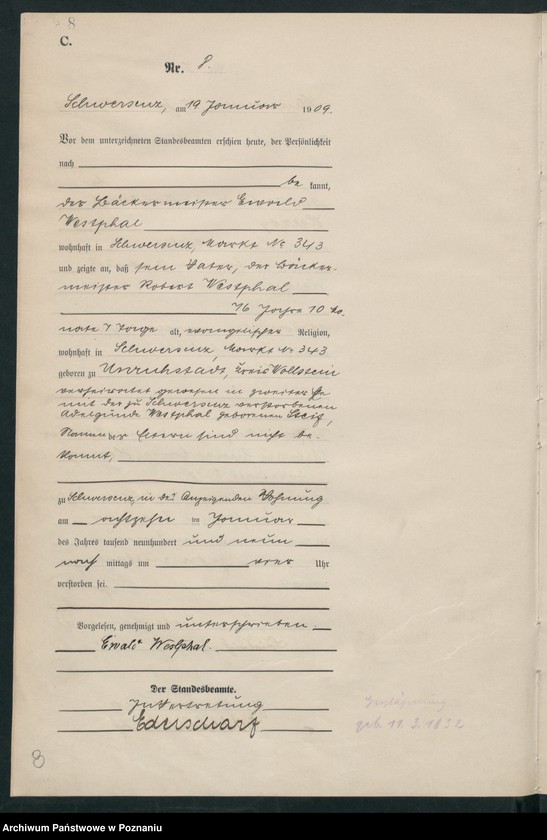 8
C.
Nr. 8.
Schwersenz, am 19 Januar 1909.
Vor dem unterzeichneten Standesbeamten erschien heute, der Persönlichkeit
nach
be kannt,
der Bäckermeister Ewald
Westphal
wohnhaft in Schwersenz, Markt No 343
und zeigte an, daß sein Vater, der Bäcker-
meister Robert Westphal
76 Jahre 10 Mo-
nate 7 Tage alt, evangelischer Religion,
wohnhaft in Schwersenz, Markt No 343
geboren zu Unruhstadt, Kreis Wollstein
verheirathet gewesen in zweiter Ehe
mit der zu Schwersenz verstorbenen
Adelgunde Westphal geborenen Steif,
Namen der Eltern sind nicht be-
kannt,
zu Schwersenz, in des Anzeigenden Wohnung
am achtzehn ten Januar
des Jahres tausend neunhundert und neun
nach mittags um vier Uhr
verstorben sei.
Vorgelesen, genehmigt und unterschrieben.
Ewald Westphal.
Der Standesbeamte.
In Vertretung
geb. 11. 3. 1832
8
Archiwum Państwowe w Poznaniu